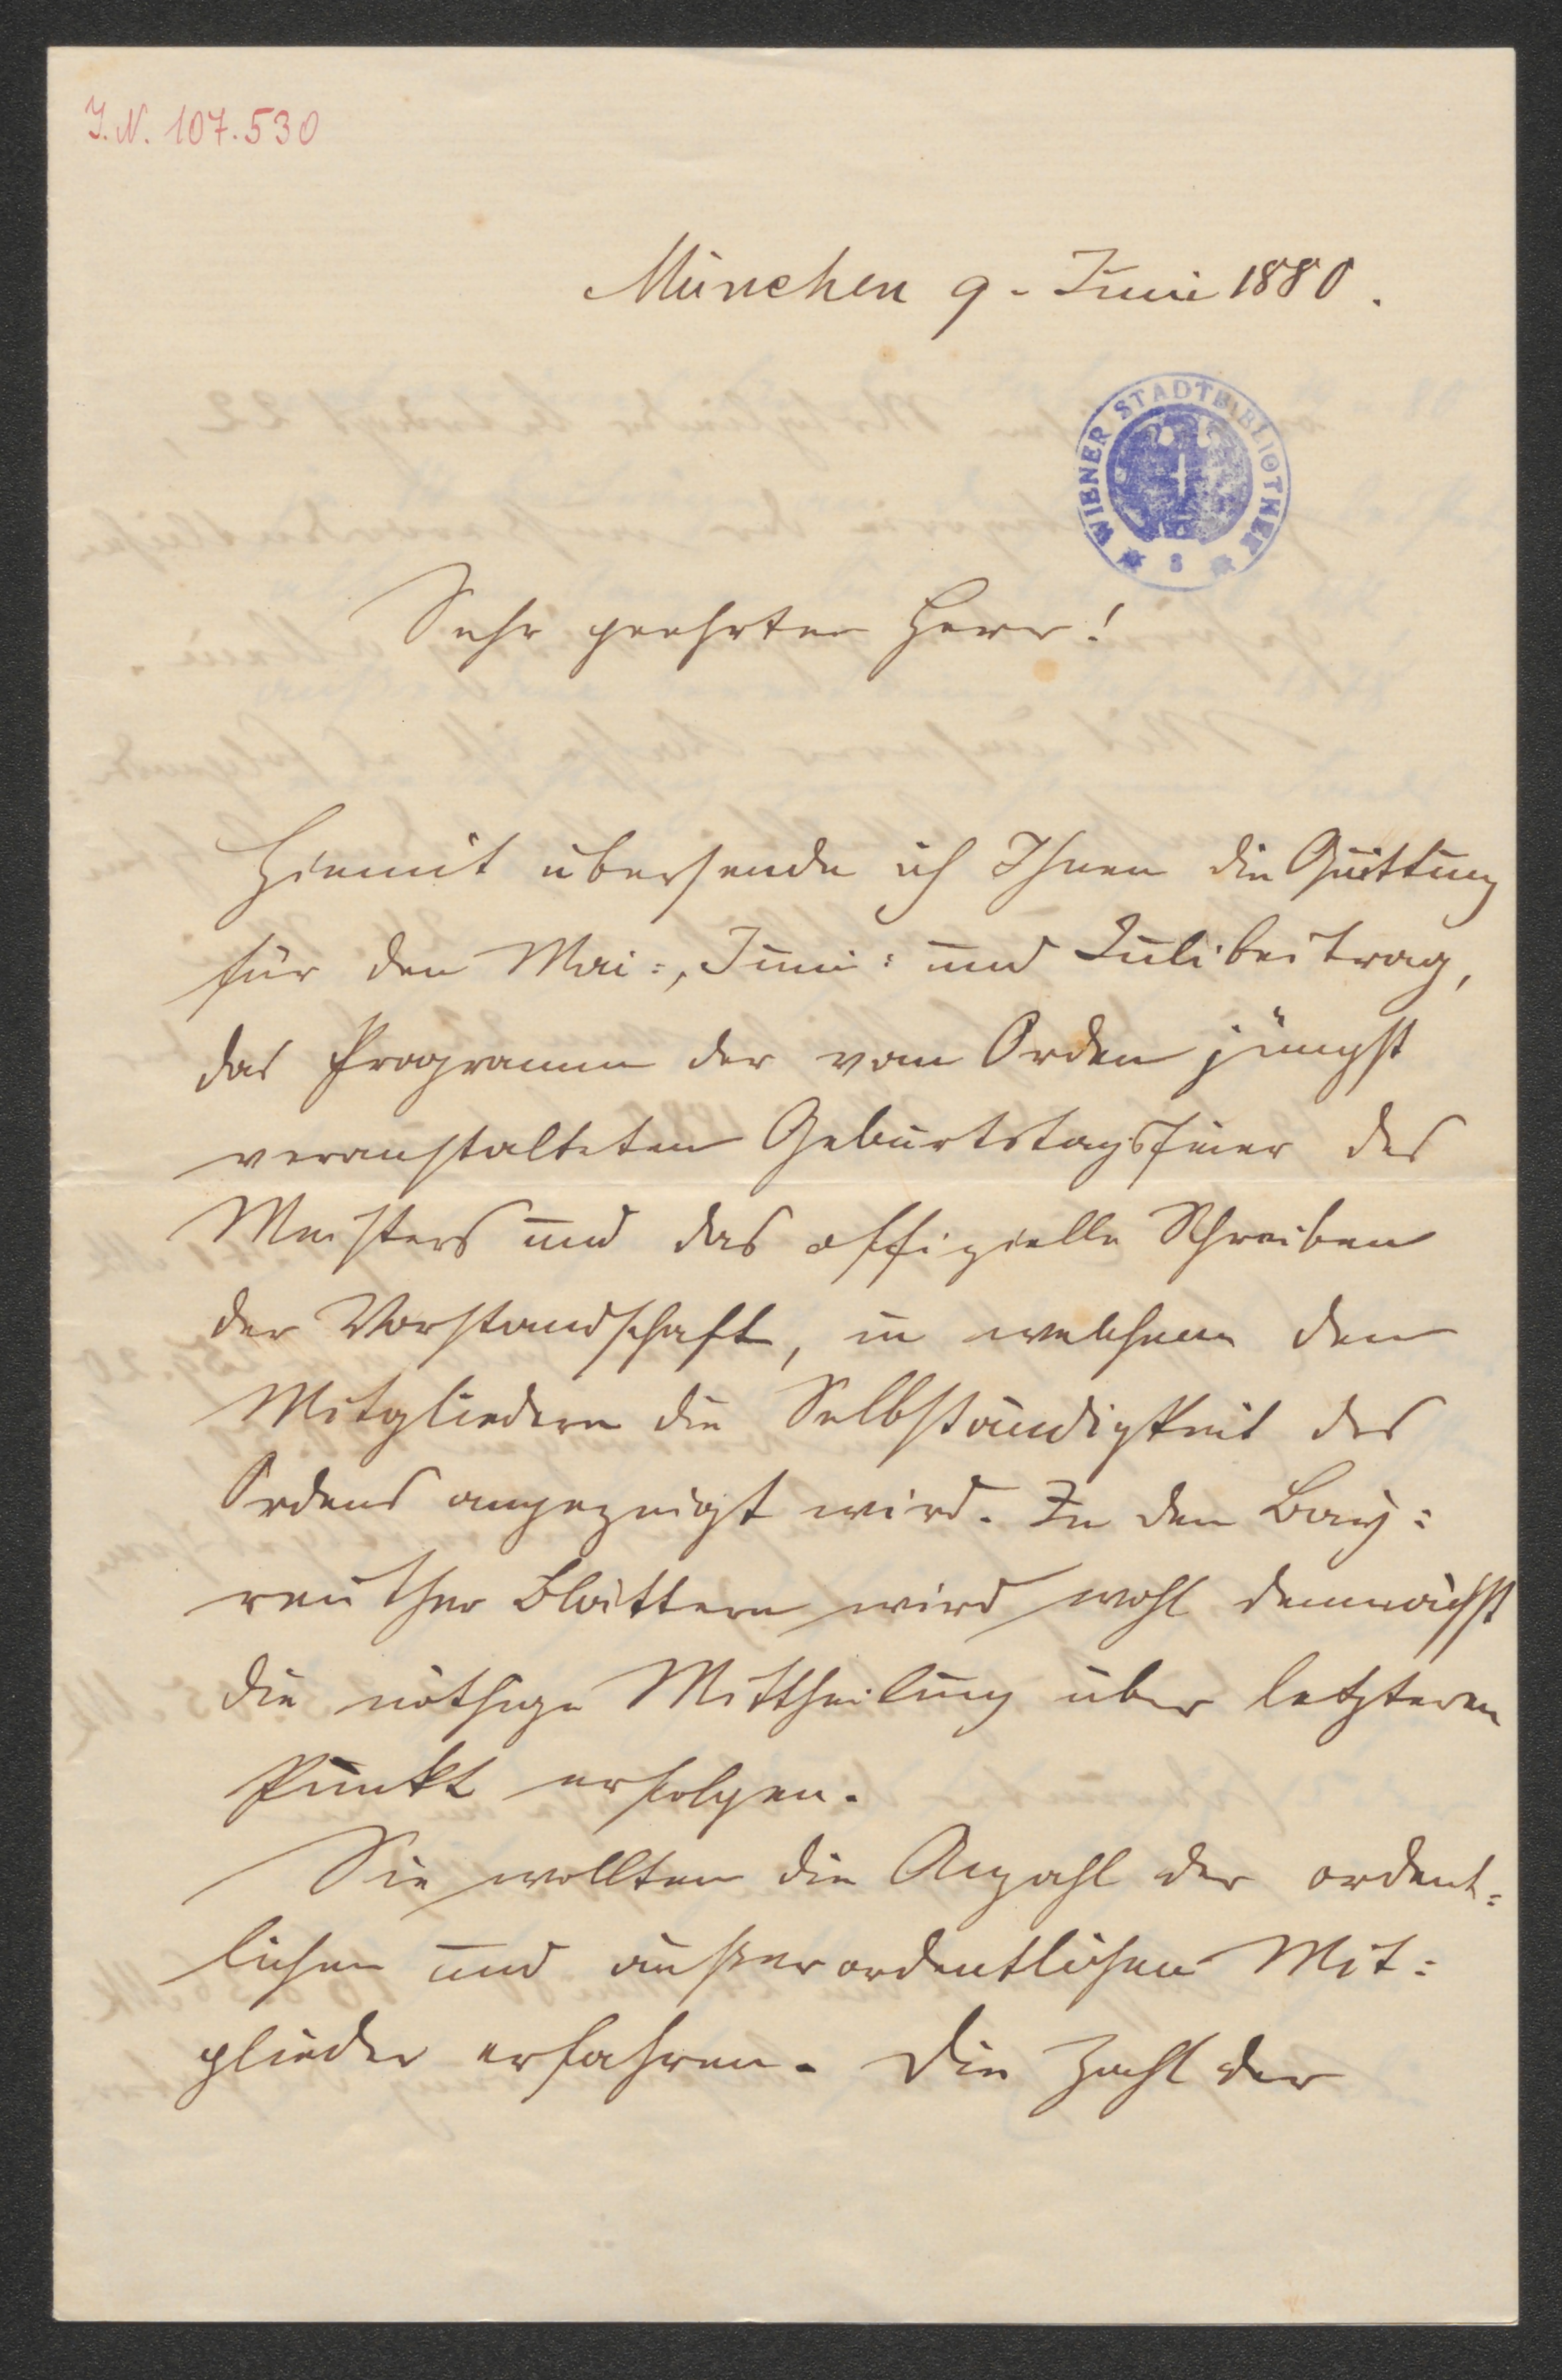 J. N. 107.530
München 9. Juni 1880.
WIENER STADTBIBLIOTHEK
Sehr geehrter Herr!
Hiemit übersende ich Ihnen die Quittung
für den Mai=, Juni= und Julibeitrag,
das Programm der vom Orden jüngst
veranstalteten Geburtstagsfeier des
Meisters und das offizielle Schreiben
der Vorstandschaft, in welchem den
Mitgliedern die Selbständigkeit des
Ordens angezeigt wird. In den Bay=
reuther Blättern wird wohl demnächst
die nöthige Mittheilung über letzteren
Punkt erfolgen.
Sie wollten die Anzahl der ordent=
lichen und außerordentlichen Mit=
glieder erfahren. Die Zahl der